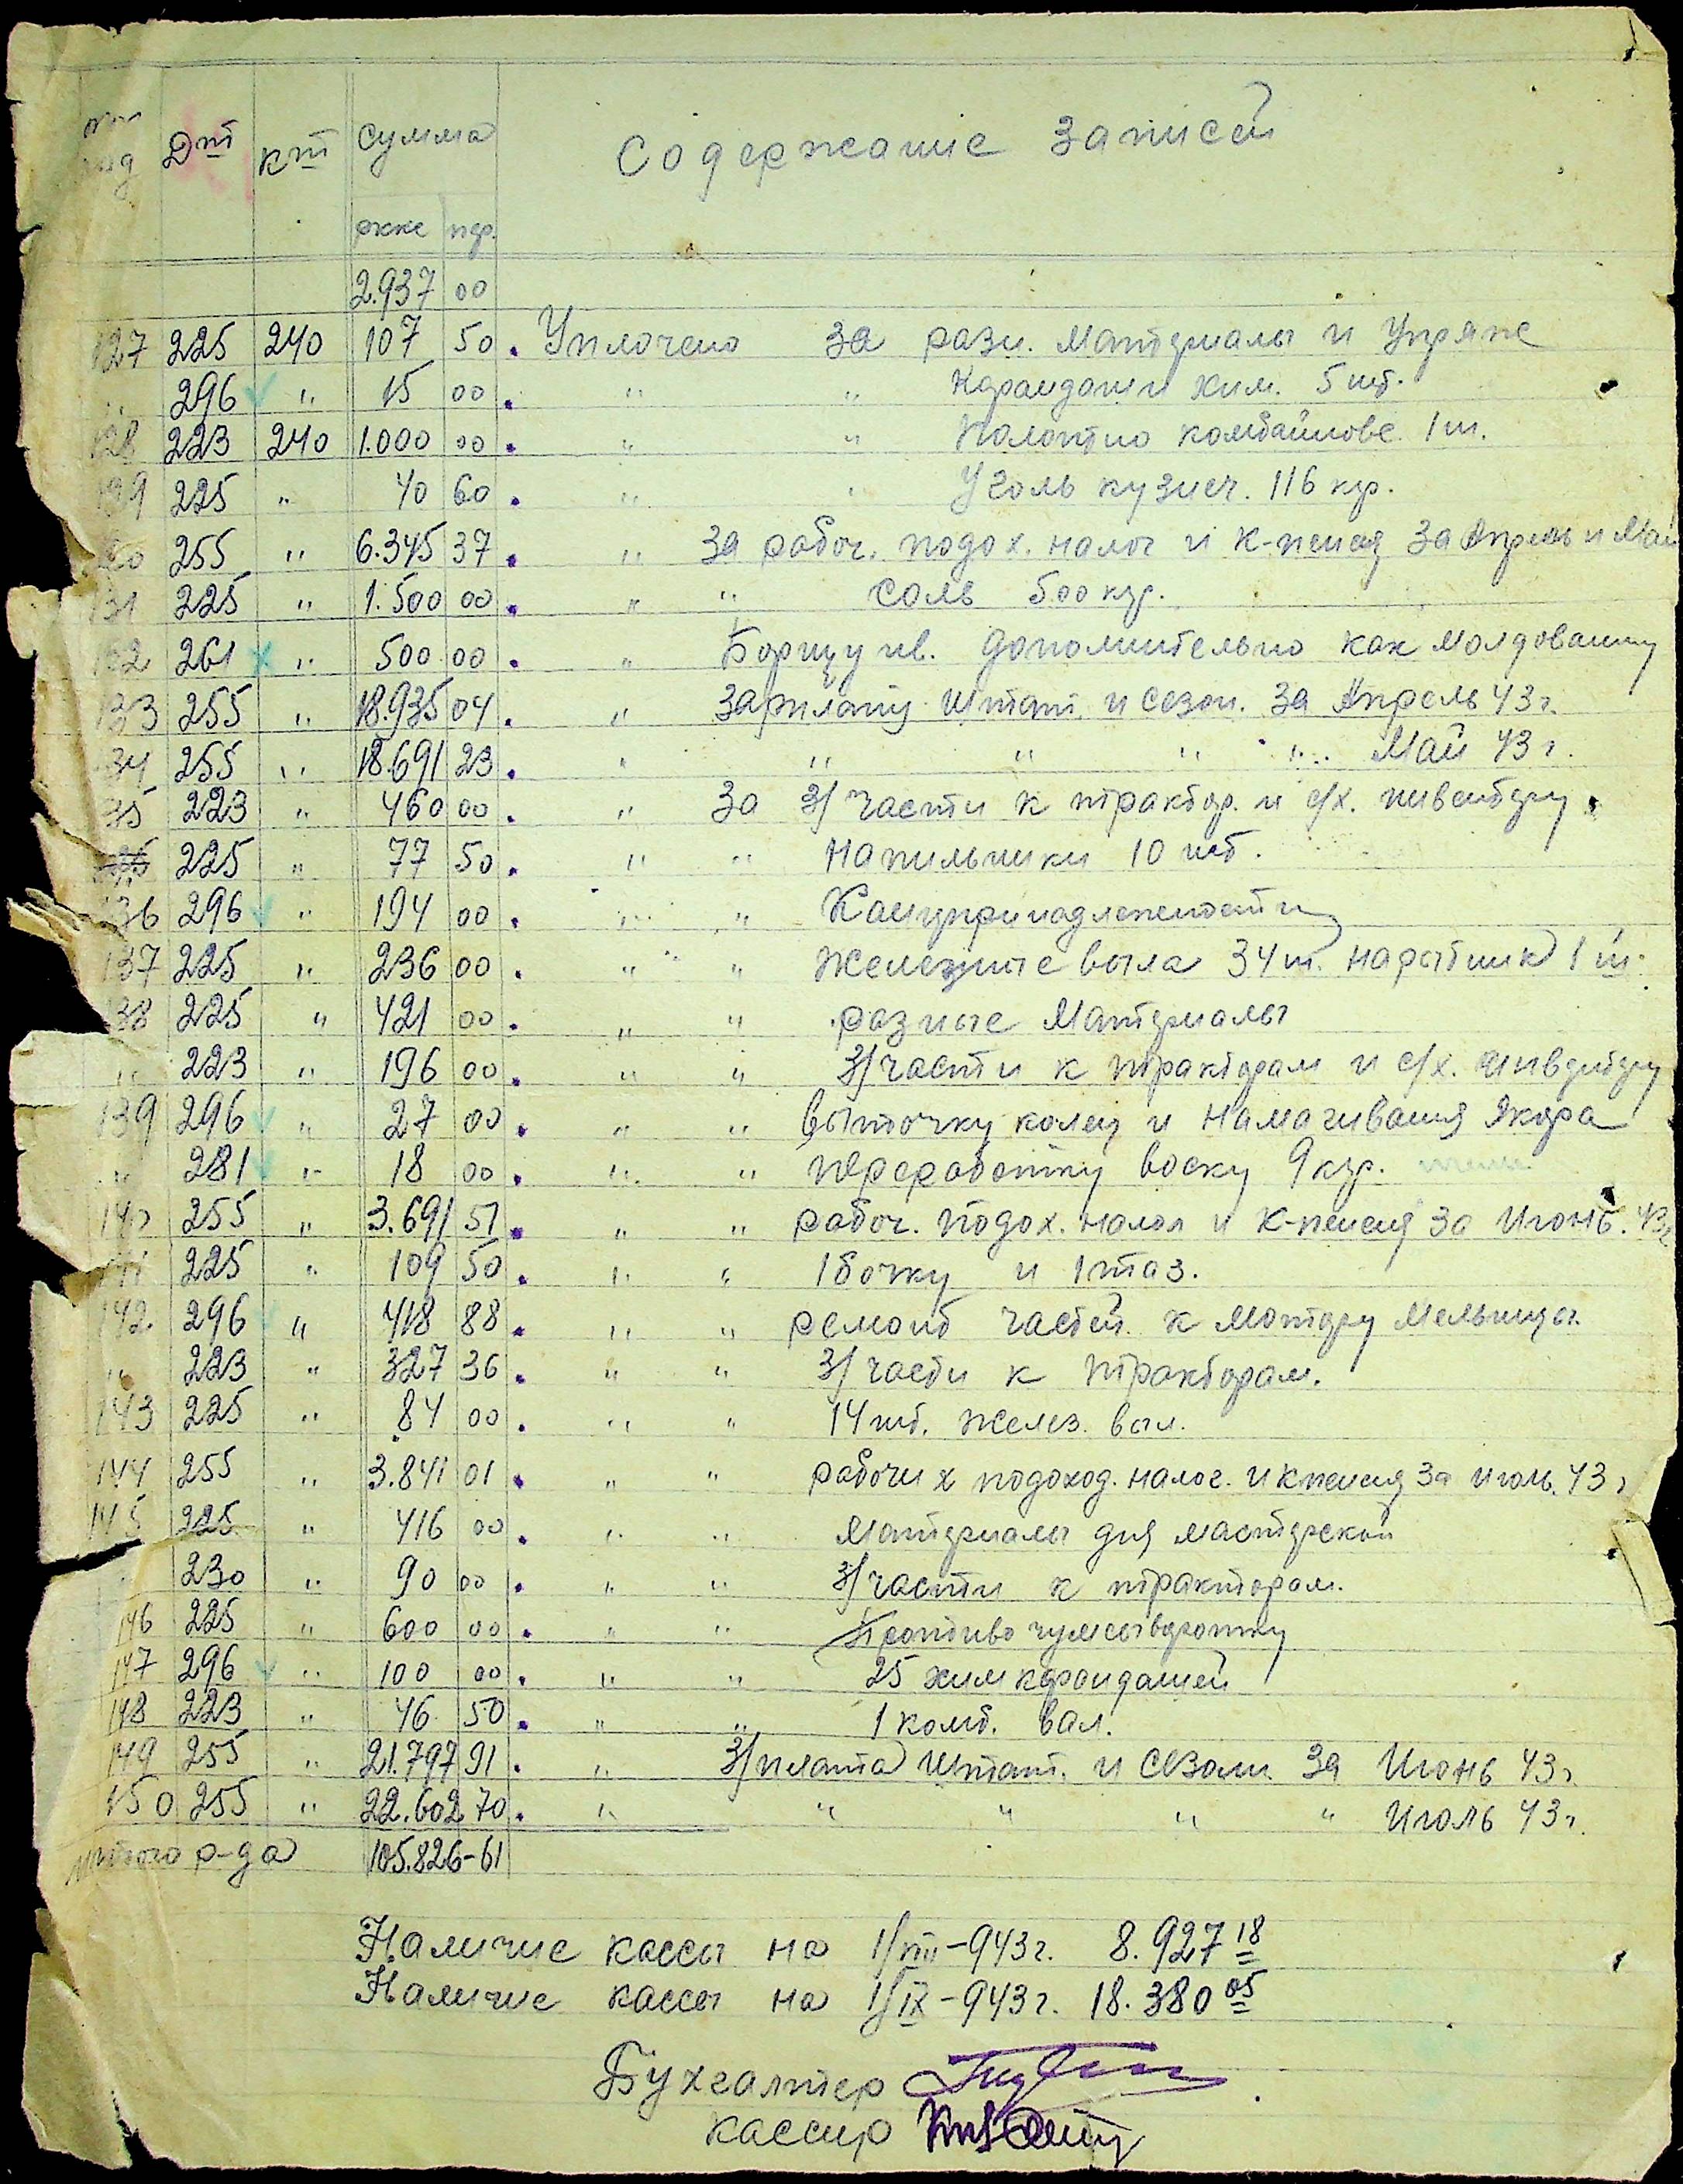 Дт Кт Сумма Содержание записей
ркке пф.
2.937 00
127 225 240 107 50 Уплочено за разн. Материалы и Упряже
" 296 " 15 00 " " Карандаши хим. 5 шт.
128 223 240 1.000 00 " " Полотно комбайнове. 1 ш.
129 225 " 40 60 " " Уголь кузнеч. 116 кгр.
130 255 " 6.345 37 " За рабоч. подох. налог и К-пенсия За Апрель и Май
131 225 " 1.500 00 " " соль 500 кгр.
132 261 " 500 00 " Борщу ив. Дополнительно как Молдованину
133 255 " 18.935 04 " Зарплату Штат. и сезон. За Апрель 43 г.
134 255 " 18.691 23 " " " " " Май 43 г.
135 223 " 460 00 " За З/части к трактор. и с/х. инвентарю
225 " 77 50 " " Напильники 10 шт.
136 296 " 194 00 " " Канцпринадлежности
137 225 " 236 00 " " Железные вила 34 ш. 1 ш.
138 225 " 421 00 " " разные Материалы
" 223 " 196 00 " " З/части к тракторам и с/х. инвентарю
139 296 " 27 00 " " выточку колец и Намагивания Якора
" 281 " 18 00 " " переработку воску 9 кгр.
140 255 " 3.691 51 " " рабоч. Подох. налог и К-пенсия За Июнь. 43 г.
141 225 " 109 50 " " 1 бочку и 1 таз.
142 296 " 418 88 " " ремонт частей к Мотору Мельницы.
" 223 " 327 36 " " З/части к Тракторам.
143 225 " 84 00 " " 14 шт. желез. вил.
144 255 " 3.841 01 " " рабочих подоход. налог. и кпенсия За июль. 43 г
145 225 " 416 00 " " Материалы для мастерской
" 230 " 90 00 " " З/части к тракторам.
146 225 " 600 00 " " Противо чумсыворотку
147 296 " 100 00 " " 25 хим карандашей
148 223 " 46 50 " " 1 комб. вал.
149 255 " 21.797 91 " З/плата Штат. и Сезон. За Июнь 43 г.
150 255 " 22.602 70 " " " " " Июль 43 г.
Итого р-да 105.826-61
Наличие кассы на 1/VIII-943 г. 8.927 18
Наличие кассы на 1/IX-943 г. 18.380 05
Бухгалтер
Кассир